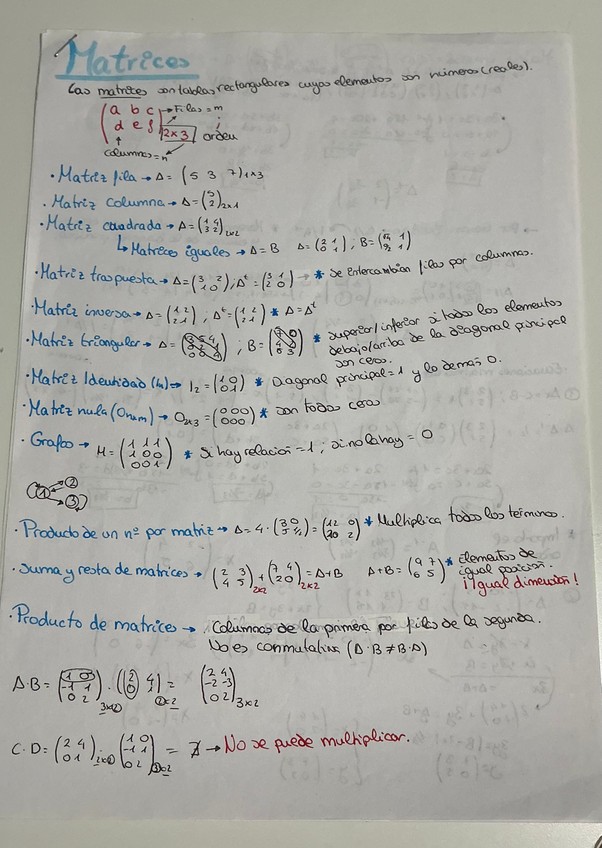 Matrices
Las matrices son tablas rectangulares cuyos elementos son números (reales).
(a b c → Filas = m
d e f) 2x3 orden
columnas = n
· Matriz fila → A = (5 3 7)1x3
· Matriz columna → A = 2x1
· Matriz cuadrada → A = (1 4 / 3 2)2x2
↳ Matrices iguales → A = B A = ; B =
· Matriz traspuesta → A = (3 2 / 1 0); Aᵗ = (3 1 / 2 0) → * Se intercambian filas por columnas.
· Matriz inversa → A = (1 2 / 2 1); Aᵗ = (1 2 / 2 1) * A = Aᵗ
· Matriz triangular → A = ; B = * superior/inferior si todos los elementos
debajo/arriba de la diagonal principal
son ceros.
· Matriz Identidad (In) → I₂ = (1 0 / 0 1) * Diagonal principal = 1 y lo demás 0.
· Matriz nula (Onxm) → O2x3 = (0 0 0 / 0 0 0) * son todo ceros
· Grafos → M = (1 1 1 / 1 0 0 / 0 0 1) * Si hay relación = 1; si no la hay = 0
1 2
3
· Producto de un nº por matriz → A = 4 · = * Multiplica todos los términos.
· Suma y resta de matrices → (2 3 / 4 5)2x2 + (7 4 / 2 0)2x2 = A+B A+B = (9 7 / 6 5) * Elementos de
igual posición.
¡Igual dimensión!
· Producto de matrices → · Columnas de la primera por filas de la segunda.
No es conmutativa (A · B ≠ B · A)
A·B = (1 0 / -1 1 / 0 2)3x2 · (2 4 / 0 1)2x2 = (2 4 / -2 -3 / 0 2)3x2
C·D = (2 4 / 0 1)2x2 · (1 0 / -1 1 / 0 2)3x2 = ∄ → No se puede multiplicar.